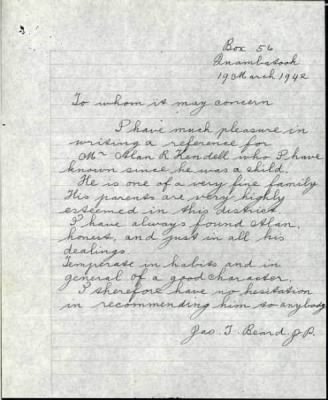 Box 56
Quambatook
19 March 1942
To whom it may concern
I have much pleasure in
writing a reference for
Mr Alan R Kendell who I have
known since he was a child.
He is one of a very fine family
His parents are very highly
esteemed in this district
I have always found Alan,
honest, and just in all his
dealings.
Temperate in habits and in
general of a good character.
I therefore have no hesitation
in recommending him to anybody
Jas. T. Beard J.P.